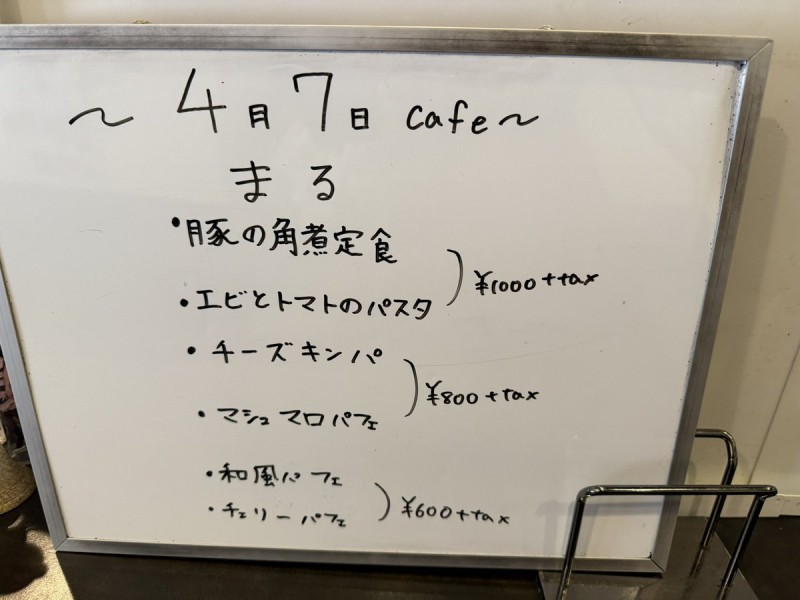 ～ 4月7日 cafe～
まる
・豚の角煮定食
・エビとトマトのパスタ
¥1000+tax
・チーズキンパ
・マシュマロパフェ
¥800+tax
・和風パフェ
・チェリーパフェ
¥600+tax